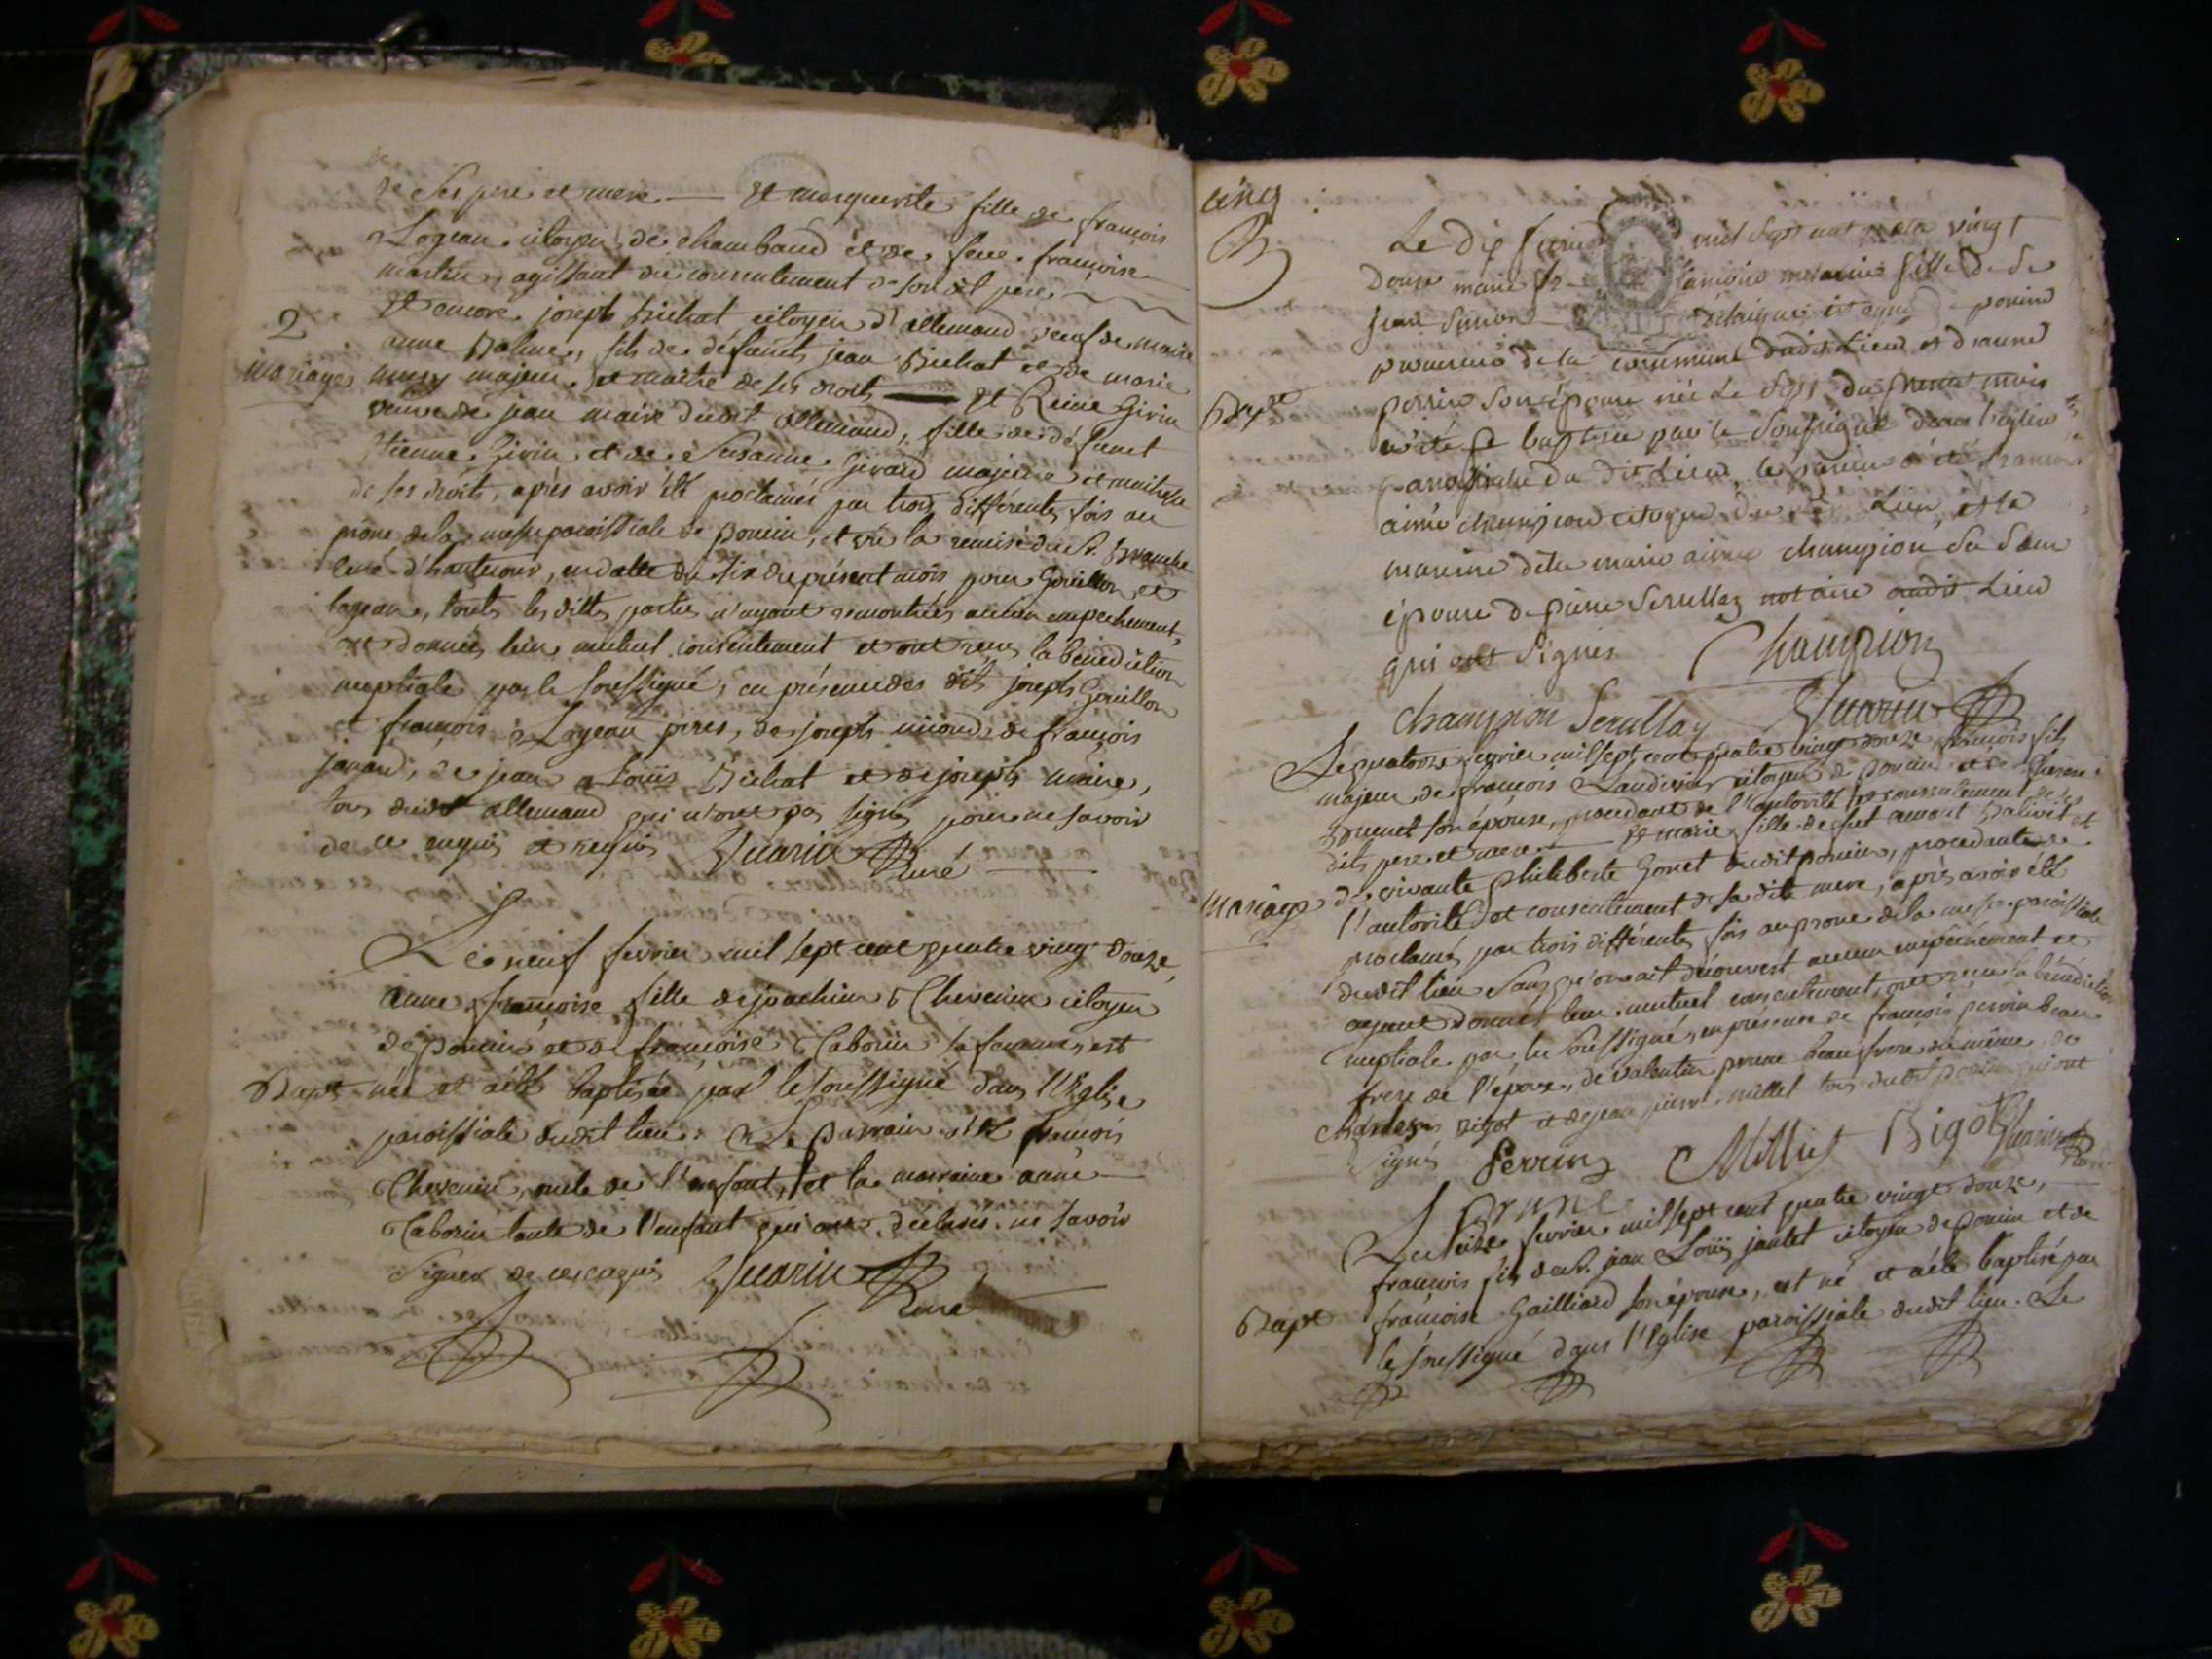 de ses pere et mere — Et marguerite fille de françois
Logean citoyen de chambaud et de feue françoise
martin, agissant du consentement de son dit pere
Et encore joseph Bichat citoyen d'allemand veuf de marie
2
anne fils de défunts jean Bichat et de marie
mariages
majeur et maitre de ses droits — Et Reine Girin
veuve de jean maire dudit allemand, fille de défunt
Etienne Girin et de Susanne Girard majeure et maitresse
de ses droits, après avoir été proclamés par trois différentes fois au
prone de la messe paroissiale de poncin, et vu la remise du Sr. Branche
curé d'hautecour, en datte du six du présent mois pour Goiillon et
logean, toutes les dittes parties n'ayant remontrées aucun empechement,
ont données leur mutuel consentement et ont reçu la bénédiction
nuptiale par le soussigné, en présence des dits joseph Goiillon
et françois Logean peres, de joseph de françois
de jean Louis Bichat et de joseph maire,
tous dudit allemand qui n'ont pas signés pour ne savoir
de ce enquis et requis Guarin Curé
Le neuf fevrier mil sept cent quatre vingt douze,
anne françoise fille de joachim Chevenin citoyen
de poncin et de françoise Taborin sa femme, est
Bapt
née et a été baptisée par le soussigné dans l'Eglise
paroissiale dudit lieu: Le parrain a été françois
Chevenin, oncle de l'enfant, et la marraine anne
Taborin tante de l'enfant qui ont déclarés ne savoir
signer de ce enquis Guarin
Curé
cinq
Le dix fevrier mil sept cent quatre vingt
douze marie fille de Sr
jean Simon poncin
de la commune dudit Lieu et d'anne
perrin son épouse née Le Sept du present mois
Bapt
a été baptisée par le Soussigné dans l'église
paroissiale du dit Lieu, le parrain a été françois
aimé champion citoyen du dit Lieu, et la
marine dlle marie aimée champion sa Sœur
épouse de pierre Serullaz notaire audit Lieu
qui ont signés Champion
Champion Serullaz Guarin
Le quatorze fevrier mil sept cent quatre vingt douze françois fils
majeur de françois Laudivin citoyen de poncin et de
son épouse, procedant de l'autorité et consentement de ses
dits pere et mere — Et marie fille de fut et
de vivante philiberte Gonet dudit poncin, procedante de
mariage
l'autorité et consentement de sa dite mere, après avoir été
proclamés par trois différentes fois au prone de la messe paroissiale
dudit lieu sans qu'on ait découvert aucun empêchement et
ayant donnés leur mutuel consentement, ont reçu la bénédiction
nuptiale par le soussigné, en présence de françois perrin beau
frere de l'épouse, de valentin prune beau frere du même, de
Bigot et de jean pierre millet tous dudit poncin qui ont
signés Perrin Milliet Bigot Guarin
prune
Le seize fevrier mil sept cent quatre vingt douze,
françois fils du Sr. jean Louis jantet citoyen de poncin et de
Bapt
françoise Gailliard son épouse, est né et a été baptisé par
le soussigné dans l'Eglise paroissiale dudit lieu. Le